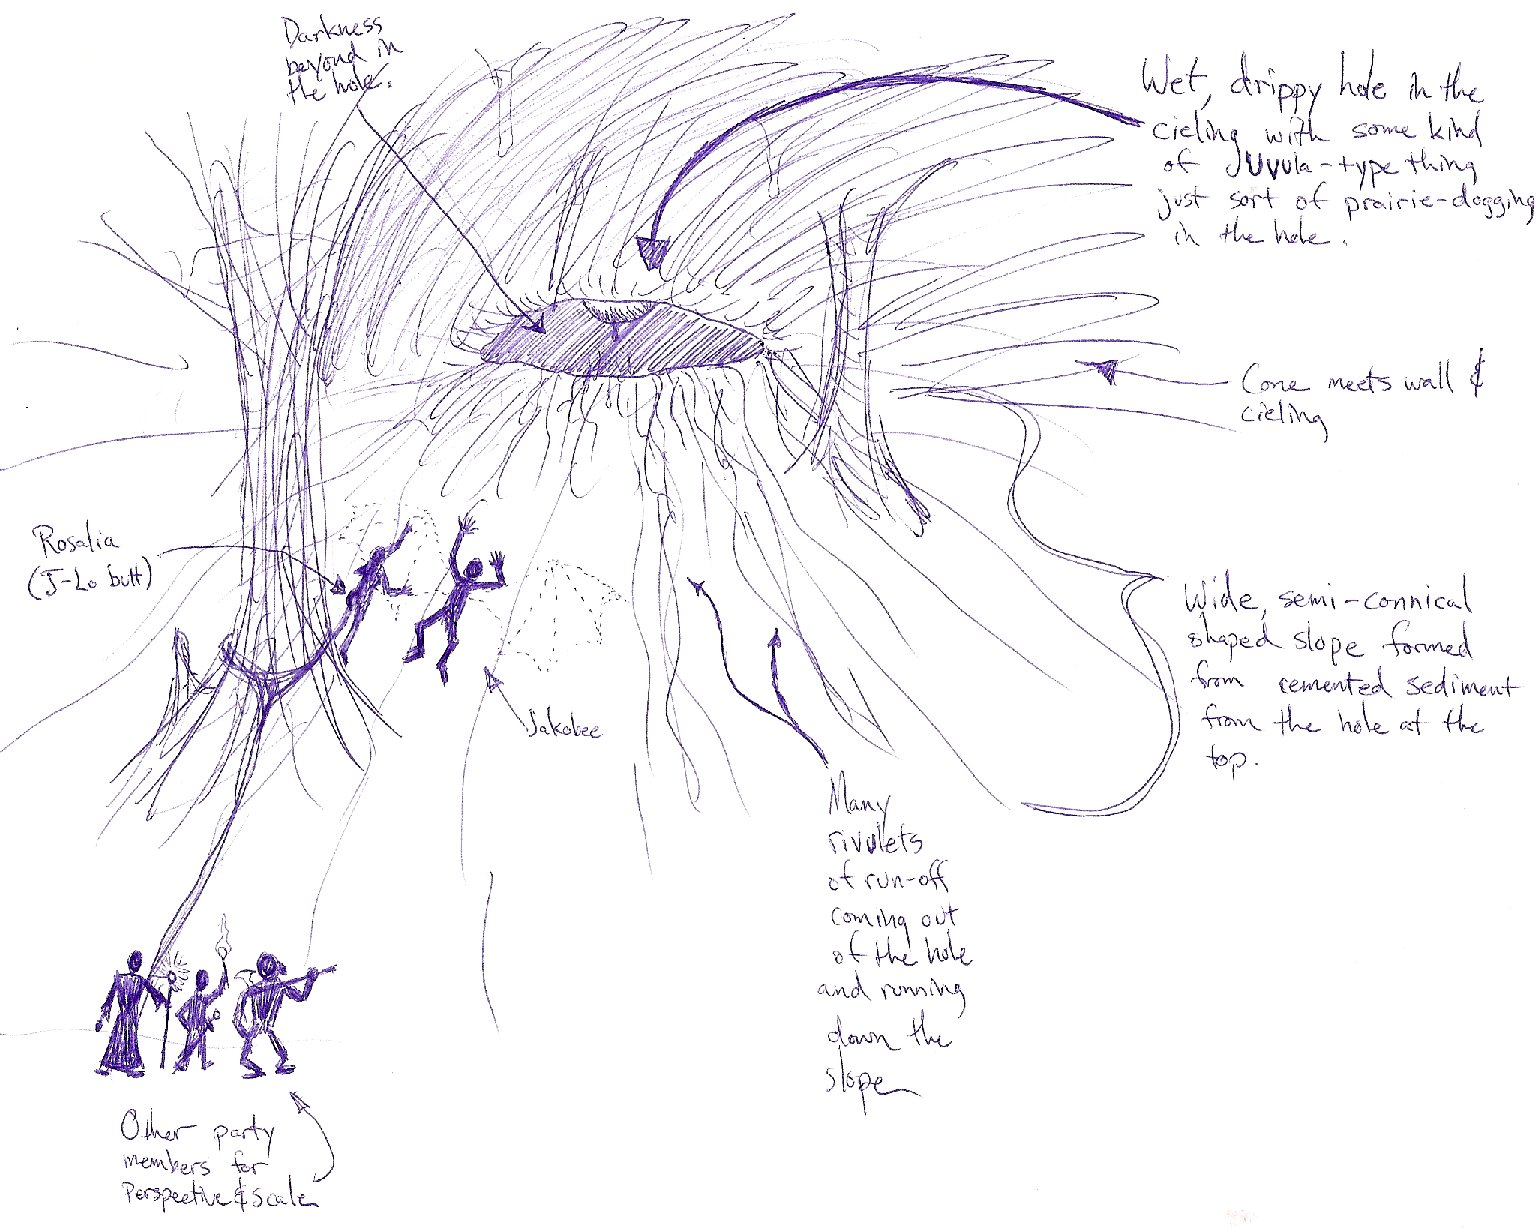 Darkness
beyond in
the hole.
Wet, drippy hole in the
cieling with some kind
of Uvula-type thing
just sort of prairie-dogging
in the hole.
Cone meets wall &
cieling
Rosalia
(J-Lo butt)
Jakobee
Wide, semi-connical
shaped slope formed
from cemented sediment
from the hole at the
top.
Many
rivulets
of run-off
coming out
of the hole
and running
down the
slope
Other party
members for
Perspective & Scale